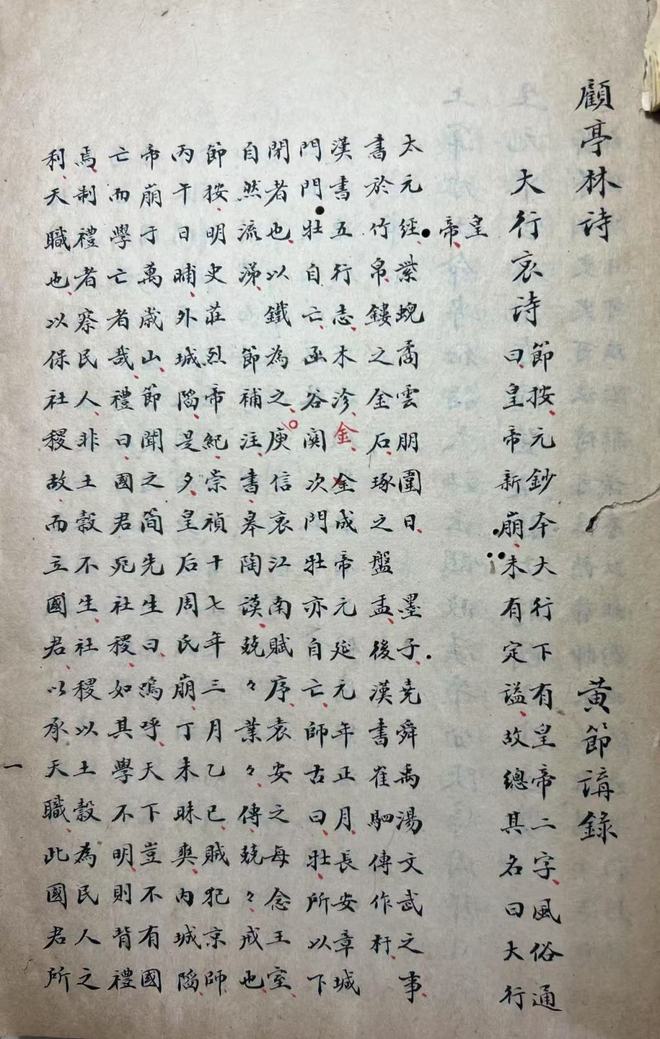 顧亭林詩 黃節講錄
大行哀詩 節按、元鈔本大行下有皇帝二字、風俗通
曰、皇帝新崩、未有定謚、故總其名曰大行
皇
帝、
太元經、紫蜺矞雲朋圍日、墨子、堯舜禹湯文武之事、
書於竹帛、鏤之金石、琢之盤盂、後漢書崔駰傳作杅、
漢書五行志、木沴金、金成帝元延元年正月、長安章城
門門牡自亡、函谷関次門牡亦自亡、師古曰、牡所以下
閉者也、以鐵為之、庾信哀江南賦序、袁安之每念王室
自然流涕、節補注、書皋陶謨、兢々業々、傳兢々戒也
節按、明史莊烈帝紀、崇禎十七年三月乙巳、賊犯京師
丙午日晡、外城陷、是夕、皇后周氏崩、丁未昧爽、內城陷、
帝崩于萬歲山、節聞之簡先生曰、嗚呼、天下豈不有國
亡而學亡者哉、禮曰、國君死社稷、如其學不明、則背禮
焉、制禮者、察民人非土穀不生、社稷以土穀為民人之
利、天職也、以保社稷故、而立國君、以承天職、此國君所
一